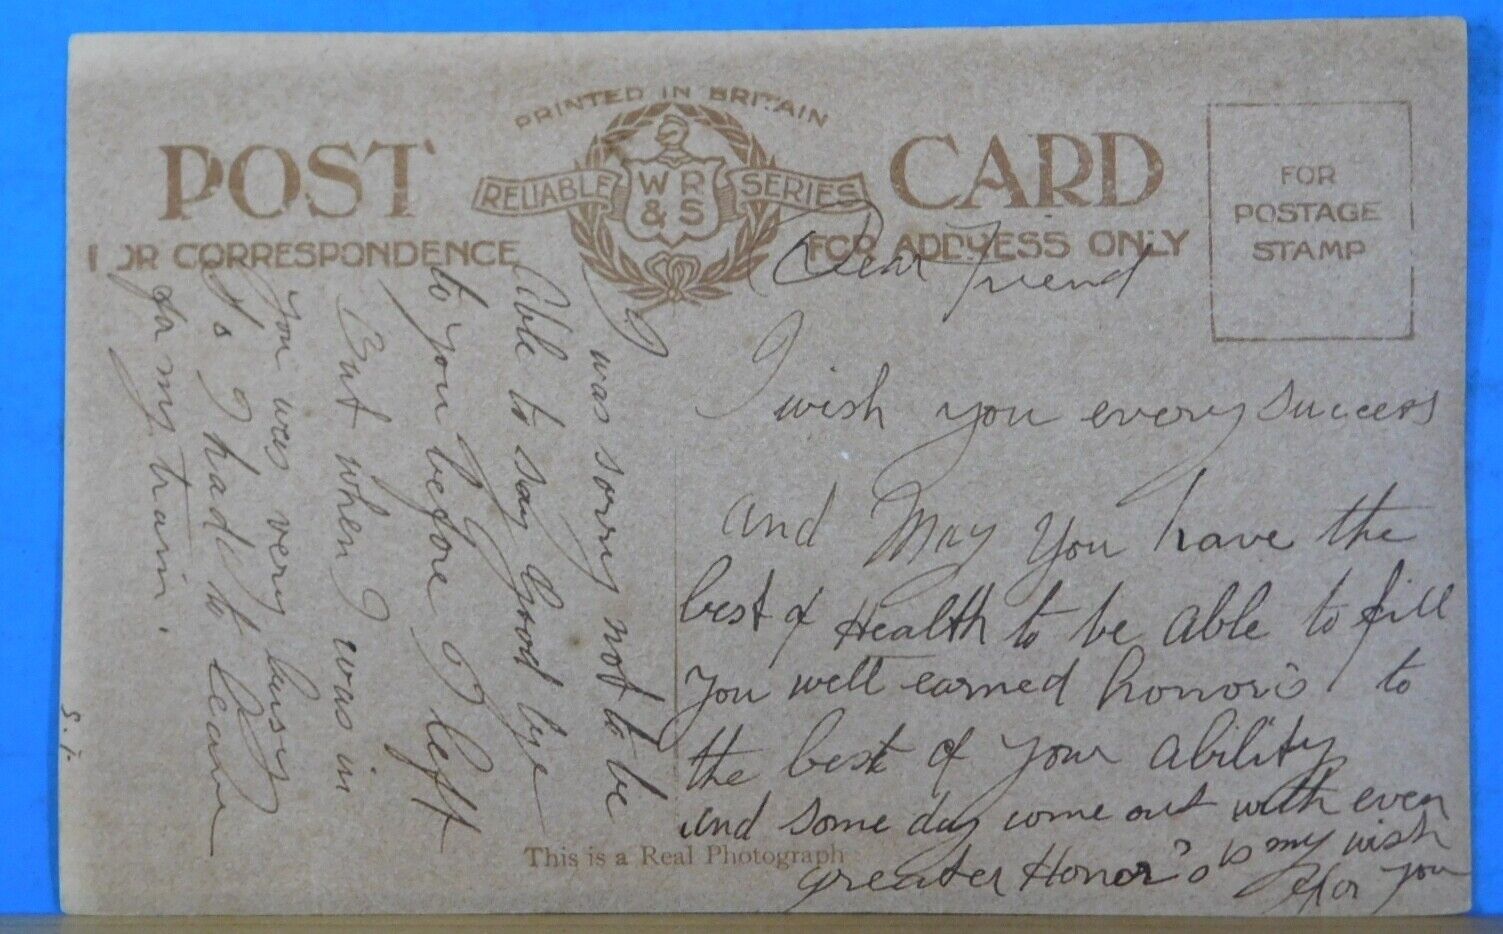 PRINTED IN BRITAIN
POST CARD
RELIABLE WR & S SERIES
FOR CORRESPONDENCE
FOR ADDRESS ONLY
FOR
POSTAGE
STAMP
Dear Friend
I wish you every success
and May You have the
best of Health to be able to fill
you well earned honor's to
the best of your ability
and some day come out with even
greater Honor's is my wish
for you
I was sorry not to be
Able to say Good bye
to you before I left
But when I was in
you was very busy
& I had to leave
for my train.
This is a Real Photograph